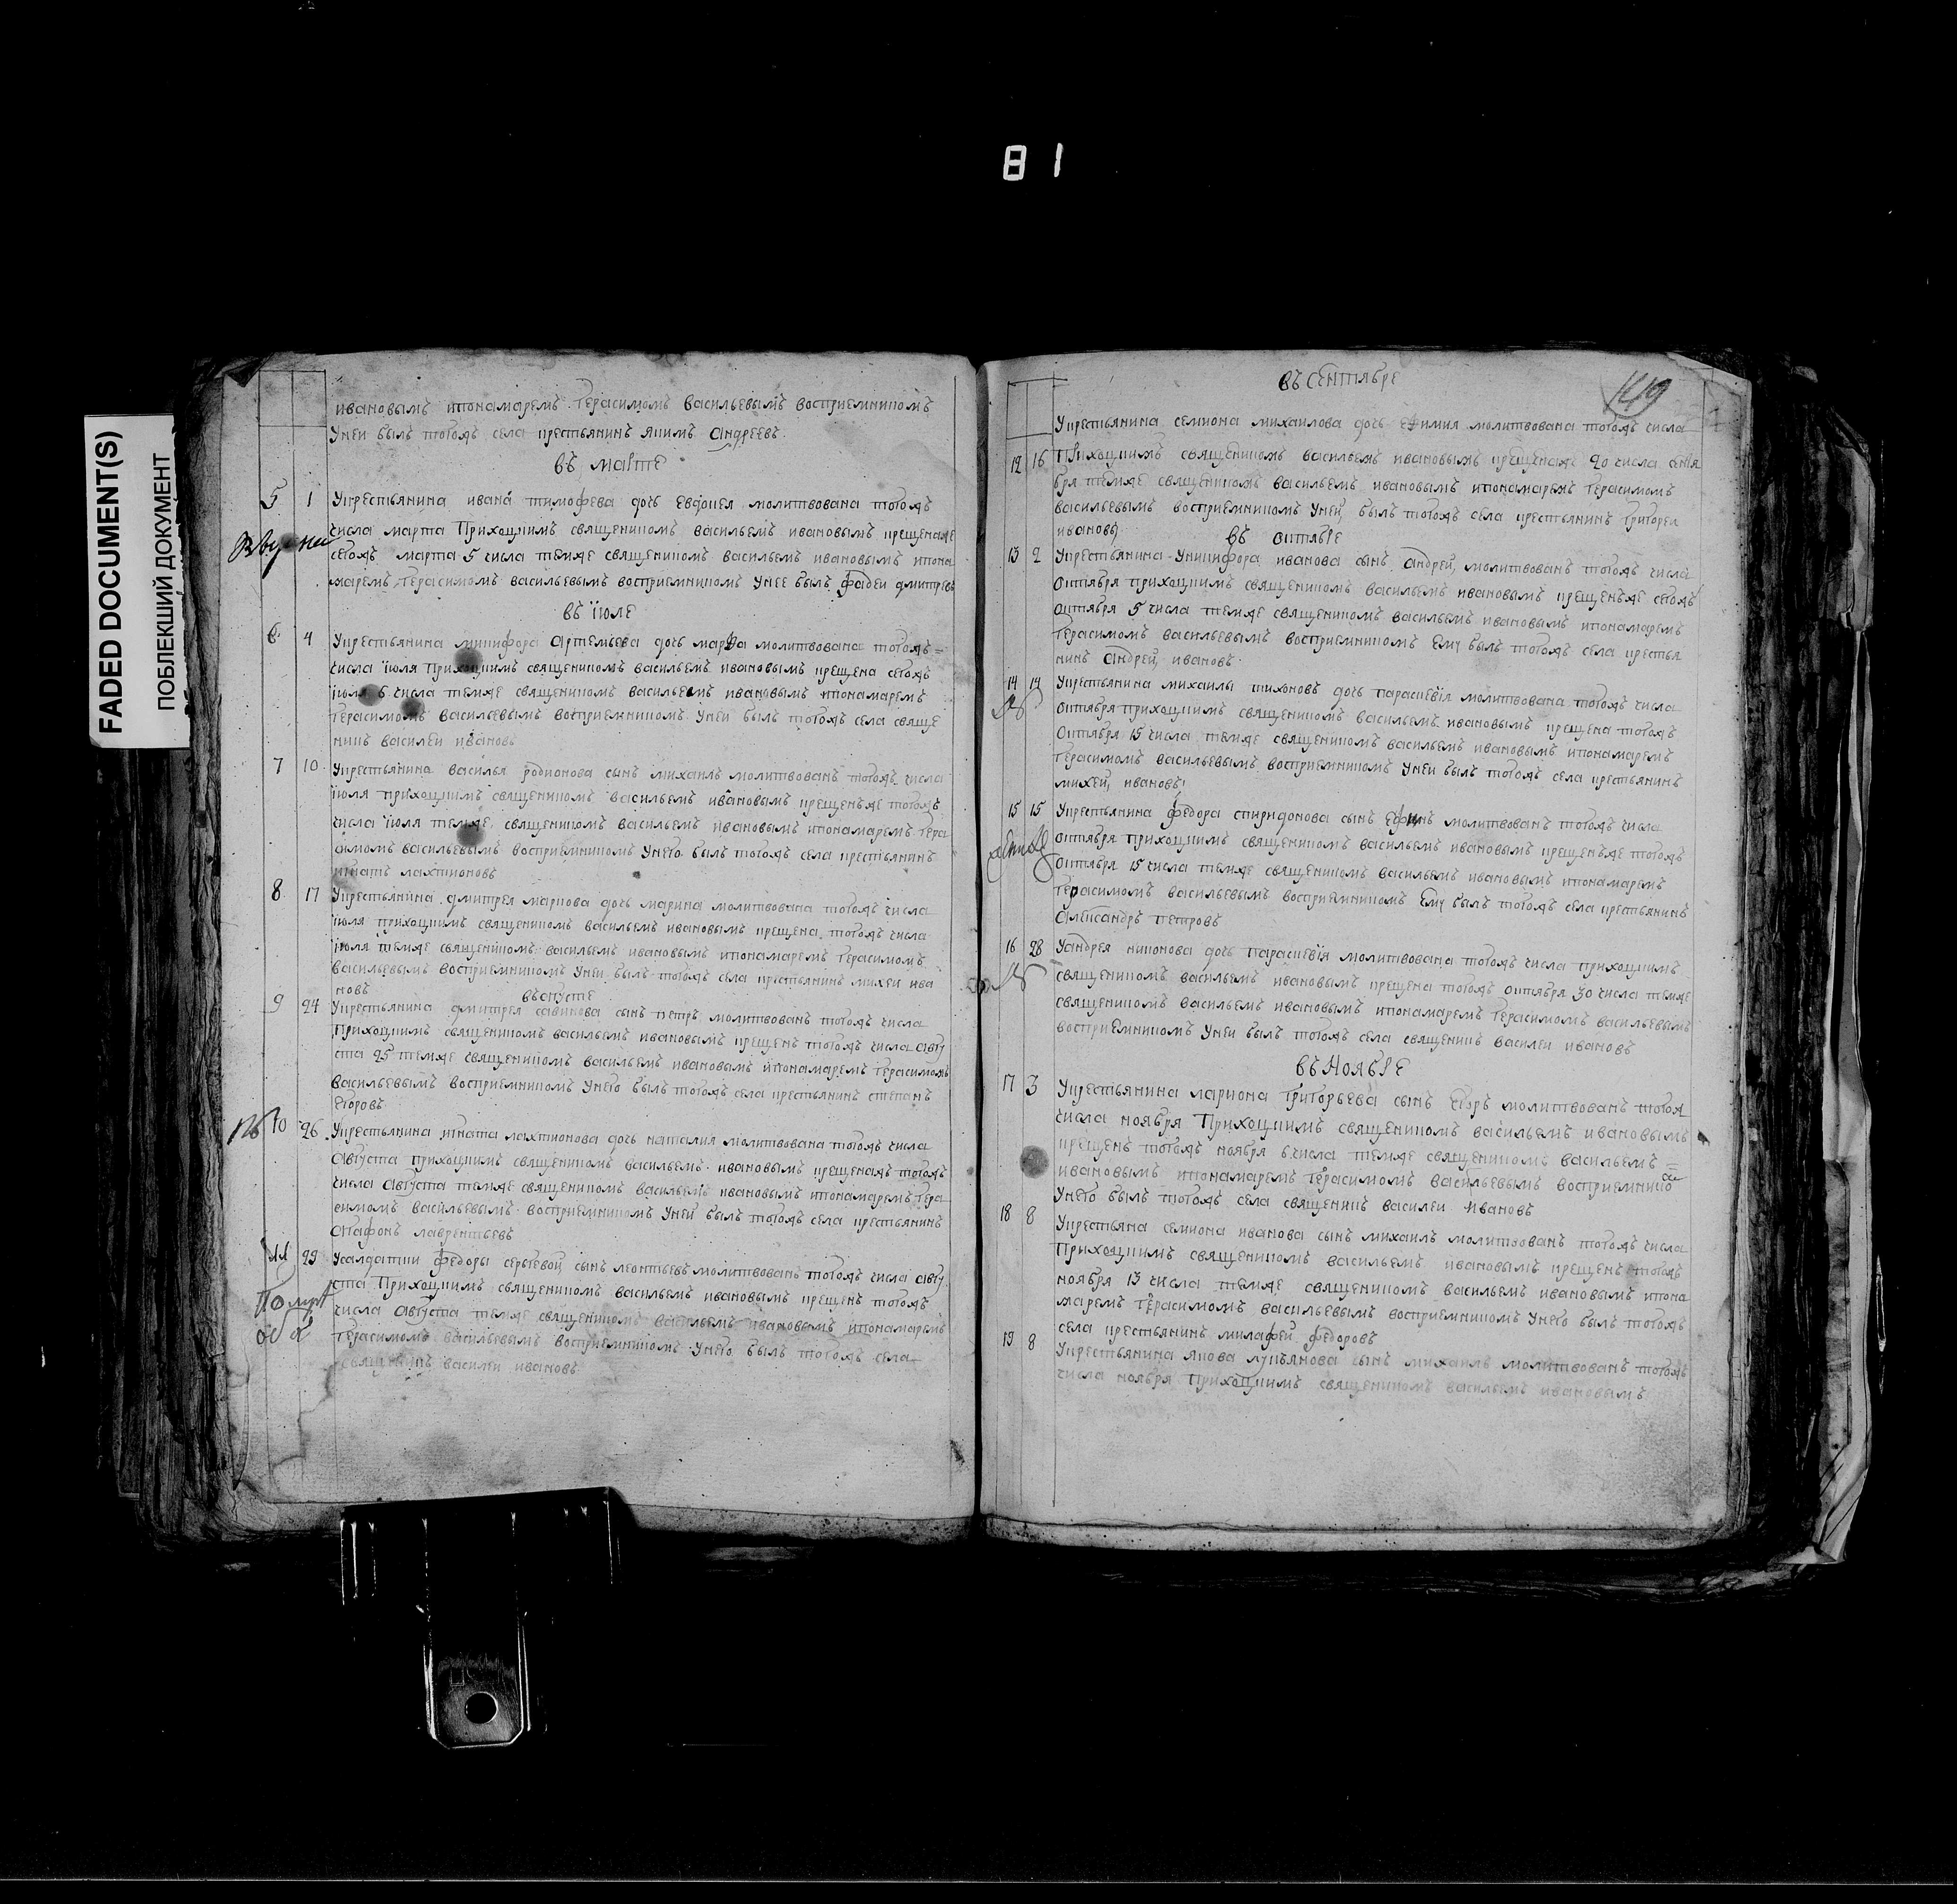 81
FADED DOCUMENT(S)
ПОБЛЕКШИЙ ДОКУМЕНТ
ивановымъ ипонамаремъ Герасимомъ васильевымъ восприемникомъ
унеи былъ тогожъ села крестьянинъ якимъ андреевъ
въ марте
5 1 Укрестьянина ивана тимофева дочь евдокея молитвована тогожъ
числа марта Приходцкимъ священикомъ васильемъ ивановымъ крещенаже
сегожъ марта 5 числа темже священикомъ васильемъ ивановымъ ипона
маремъ Герасимомъ васильевымъ восприемникомъ Унее былъ фадеи дмитревъ
въ июле
6 4 Укрестьянина никифора Артемьева дочь марфа молитвована тогожъ
числа июля приходцкимъ священикомъ васильемъ ивановымъ крещена сегожъ
июля 6 числа темже священикомъ васильемъ ивановымъ ипонамаремъ
Герасимомъ васильевымъ восприемникомъ Унеи былъ тогожъ села свяще
никъ василеи ивановъ
7 10 Укрестьянина василья родионова сынъ михаилъ молитвованъ тогожъ числа
июля приходцкимъ священикомъ васильемъ ивановымъ крещенъже тогожъ
числа июля темже священикомъ васильемъ ивановымъ ипонамаремъ Гера
симомъ васильевымъ восприемникомъ Унего былъ тогожъ села крестьянинъ
игнатъ лахтионовъ
8 17 Укрестьянина дмитрея маркова дочь марина молитвована тогожъ числа
июля приходцкимъ священикомъ васильемъ ивановымъ крещена тогожъ числа
июля темже священикомъ васильемъ ивановымъ ипонамаремъ Герасимомъ
васильевымъ восприемникомъ Унеи былъ тогожъ села крестьянинъ михеи ива
новъ
въ августе
9 24 Укрестьянина дмитрея савинова сынъ петръ молитвованъ тогожъ числа
Приходцкимъ священикомъ васильемъ ивановымъ крещенъ тогожъ числа авгу
ста 25 темже священикомъ васильемъ ивановымъ ипонамаремъ Герасимомъ
васильевымъ восприемникомъ Унего былъ тогожъ села крестьянинъ степанъ
егоровъ
10 26 Укрестьянина игната лахтионова дочь наталия молитвована тогожъ числа
Августа приходцкимъ священикомъ васильемъ ивановымъ крещенажъ тогожъ
числа августа темже священикомъ васильемъ ивановымъ ипонамаремъ Гера
симомъ васильевымъ восприемникомъ Унеи былъ тогожъ села крестьянинъ
агафонъ лаврентьевъ
11 29 Усалдатки федоры сергевои сынъ леонтьевъ молитвованъ тогожъ числа авгу
ста Приходцкимъ священикомъ васильемъ ивановымъ крещенъ тогожъ
числа августа темже священикомъ васильемъ ивановымъ ипонамаремъ
Герасимомъ васильевымъ восприемникомъ Унего былъ тогожъ села
священикъ василеи ивановъ
въ сентябре
149
Укрестьянина семиона михаилова дочь ефимия молитвована тогожъ числа
12 16 Приходцкимъ священикомъ васильемъ ивановымъ крещенаже 20 числа сентя
бря темже священикомъ васильемъ ивановымъ ипонамаремъ Герасимомъ
васильевымъ восприемникомъ Унеи былъ тогожъ села крестьянинъ григореи
ивановъ
въ октябре
13 2 Укрестьянина Уникифора иванова сынъ андреи молитвованъ тогожъ числа
октября приходцкимъ священикомъ васильемъ ивановымъ крещенъже сегожъ
октября 5 числа темже священикомъ васильемъ ивановымъ ипонамаремъ
Герасимомъ васильевымъ восприемникомъ Ему былъ тогожъ села крестья
нинъ андреи ивановъ
14 14 Укрестьянина михаилы тихоновъ дочь параскевия молитвована тогожъ числа
октября приходцкимъ священикомъ васильемъ ивановымъ крещена тогожъ
октября 15 числа темже священикомъ васильемъ ивановымъ ипонамаремъ
Герасимомъ васильевымъ восприемникомъ Унеи былъ тогожъ села крестьянинъ
михеи ивановъ
15 15 Укрестьянина федора спиридонова сынъ молитвованъ тогожъ числа
октября приходцкимъ священикомъ васильемъ ивановымъ крещенъже тогожъ
октября 15 числа темже священикомъ васильемъ ивановымъ ипонамаремъ
Герасимомъ васильевымъ восприемникомъ Ему былъ тогожъ села крестьянинъ
Александръ петровъ
16 28 Уандрея никонова дочь параскевия молитвована тогожъ числа приходцкимъ
священикомъ васильемъ ивановымъ крещена тогожъ октября 30 числа темже
священикомъ васильемъ ивановымъ ипонамаремъ Герасимомъ васильевымъ
восприемникомъ Унеи былъ тогожъ села священикъ василеи ивановъ
въ Ноябре
17 3 Укрестьянина лариона григорьева сынъ егоръ молитвованъ тогож
числа ноября Приходцкимъ священикомъ васильемъ ивановымъ
крещенъ тогожъ ноября 6 числа темже священикомъ васильемъ
ивановымъ ипонамаремъ Герасимомъ васильевымъ восприемнико
Унего былъ тогожъ села священикъ василеи ивановъ
18 8 Укрестьяна семиона иванова сынъ михаилъ молитвованъ тогожъ числа
Приходцкимъ священикомъ васильемъ ивановымъ крещенъ тогожъ
ноября 13 числа темже священикомъ васильемъ ивановымъ ипона
маремъ Герасимомъ васильевымъ восприемникомъ Унего былъ тогожъ
села крестьянинъ милафеи федоровъ
19 8 Укрестьянина якова лукъянова сынъ михаилъ молитвованъ тогожъ
числа ноября Приходцкимъ священикомъ васильемъ ивановымъ